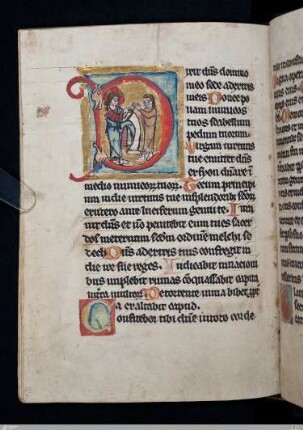 Dixit dn̄s domino
meo sede a dextris
meis Donec pon
nam inimicos
tuos scabellum
pedum tuorum.
Virgam virtutis
tue emittet dn̄s
er syon dn̄are i
medio inimicor tuor. Tecum principi
um in die virtutis tue in splendorib; scōr
ex utero ante luciferum genui te. Iura
uit dn̄s et nō penitebit eum tu es sacer
dos in eternum scdm ordinē melchi se
dech Dn̄s a dextris tuis confregit in
die ire sue reges. Iudicabit in nacioni
bus implebit ruinas cōquassabit capita
in terra multor De torrente in uia bibet ꝓpt
ea exaltabit caput.
Confitebor tibi dn̄e in toto corde